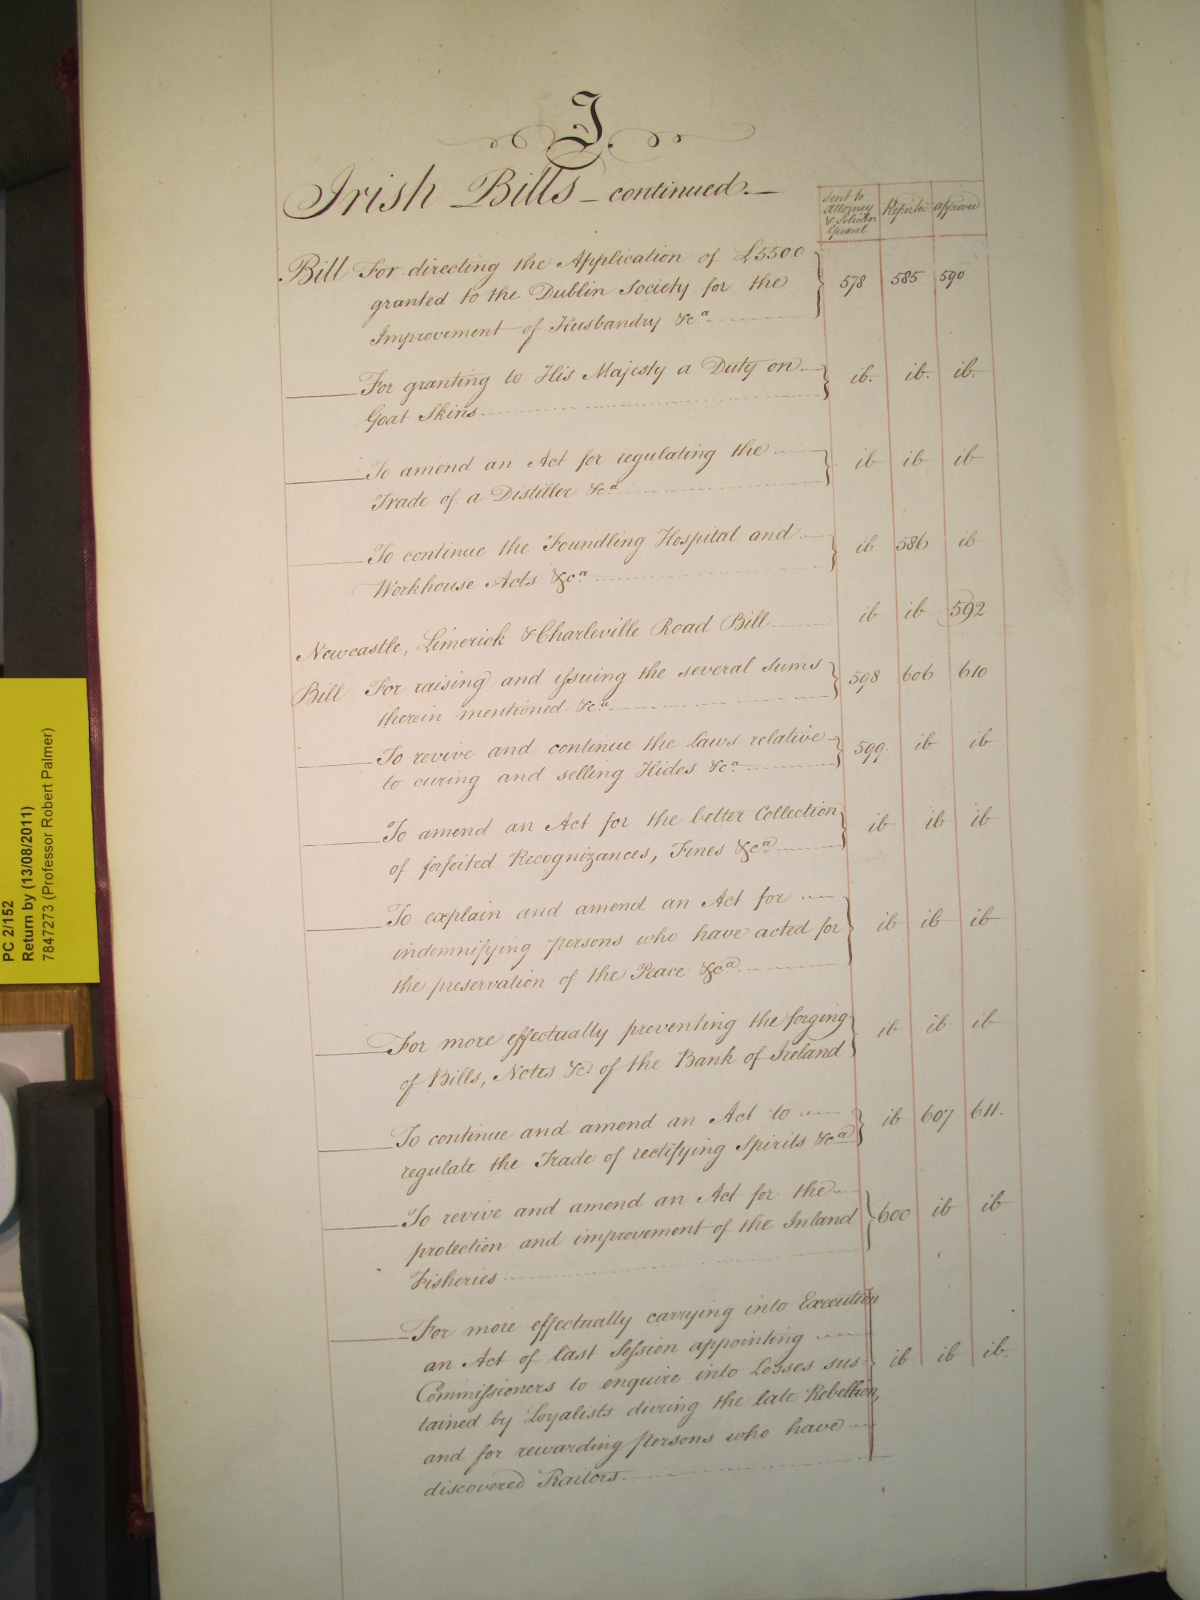 I.
Irish Bills – continued. –
Sent to Attorney & Solicitor General
Reported
approved
Bill For directing the Application of £5500
granted to the Dublin Society for the
Improvement of Husbandry &c.a
578 585 590
For granting to His Majesty a Duty on
Goat Skins
ib. ib. ib.
To amend an Act for regulating the
Trade of a Distiller &c.a
ib ib ib
To continue the Foundling Hospital and
Workhouse Acts &c.a
ib 586 ib
Newcastle, Limerick & Charleville Road Bill
ib ib 592
Bill For raising and issuing the several Sums
therein mentioned &c.a
598 606 610
To revive and continue the laws relative
to curing and selling Hides &c.a
599. ib ib
To amend an Act for the better Collection
of forfeited Recognizances, Fines &c.a
ib ib ib
To explain and amend an Act for
indemnifying persons who have acted for
the preservation of the Peace &c.a
ib ib ib
For more effectually preventing the forging
of Bills, Notes &c. of the Bank of Ireland
ib ib ib
To continue and amend an Act to
regulate the Trade of rectifying Spirits &c.a
ib 607 611.
To revive and amend an Act for the
protection and improvement of the Inland
Fisheries
600 ib ib
For more effectually carrying into Execution
an Act of last Session appointing
Commissioners to enquire into Losses sus-
tained by Loyalists during the late Rebellion,
and for rewarding persons who have
discovered Traitors.
ib ib ib.
PC 2/152
Return by (13/08/2011)
7847273 (Professor Robert Palmer)